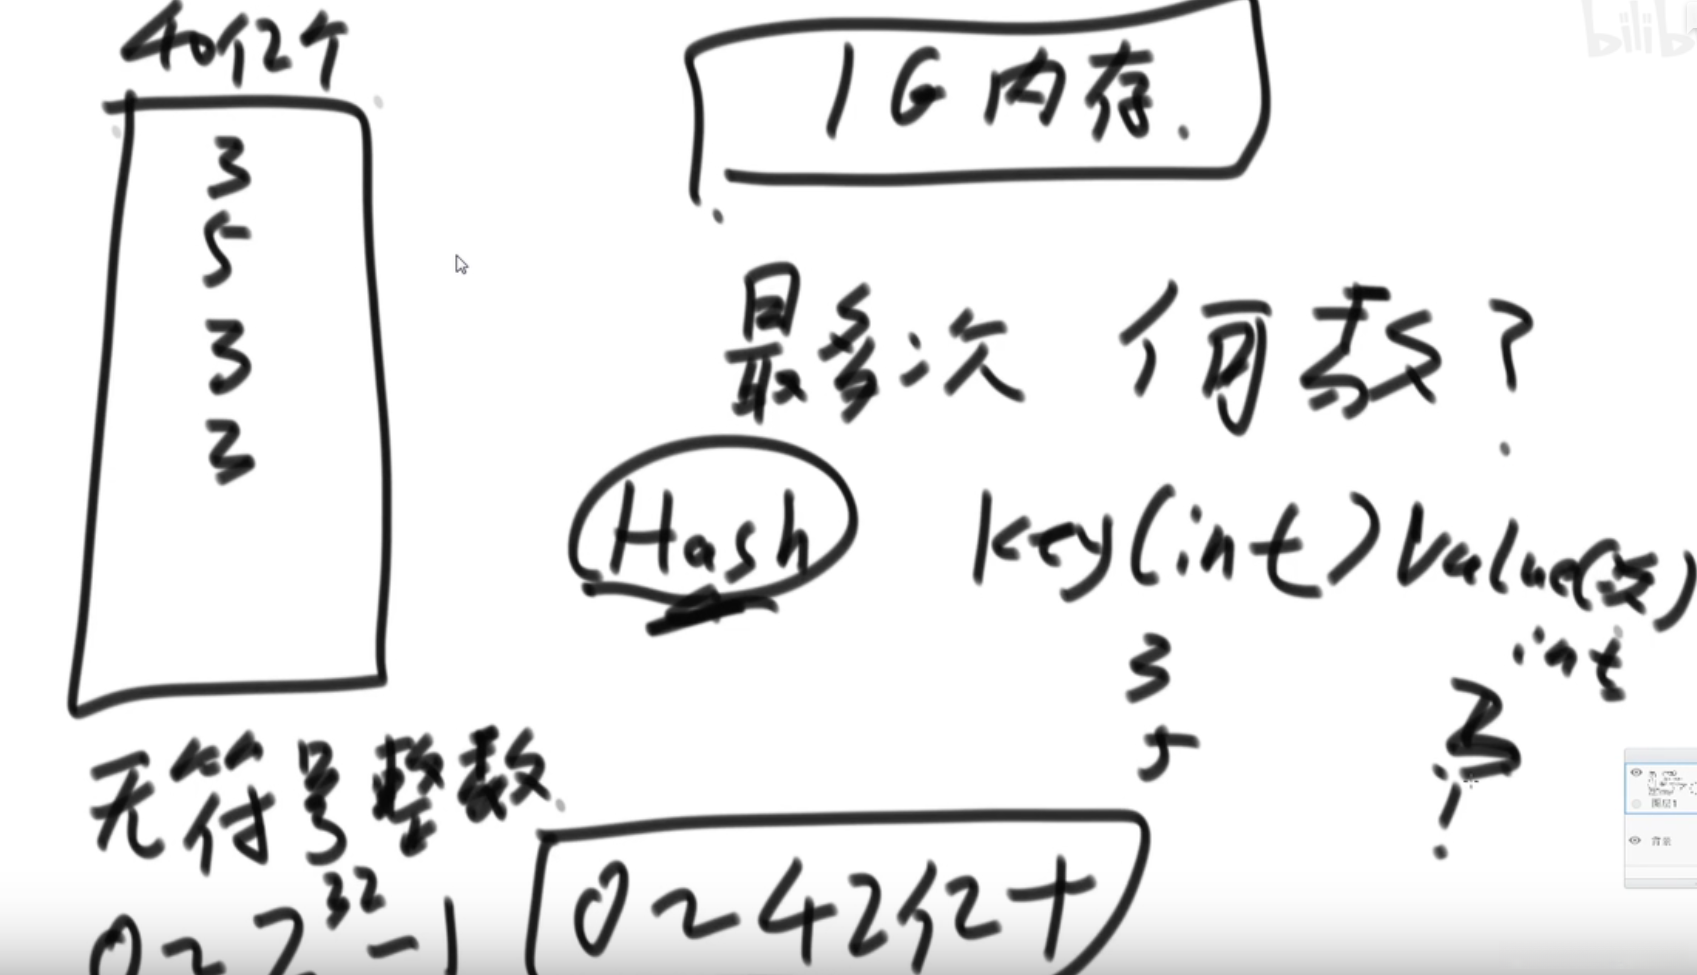 40亿个
1G内存.
3
5
3
2
最多次 何数?
Hash key(int) Value(次)
int
3
5
无符号整数
0~2^32-1
0~42亿+
图层1
背景
bilib